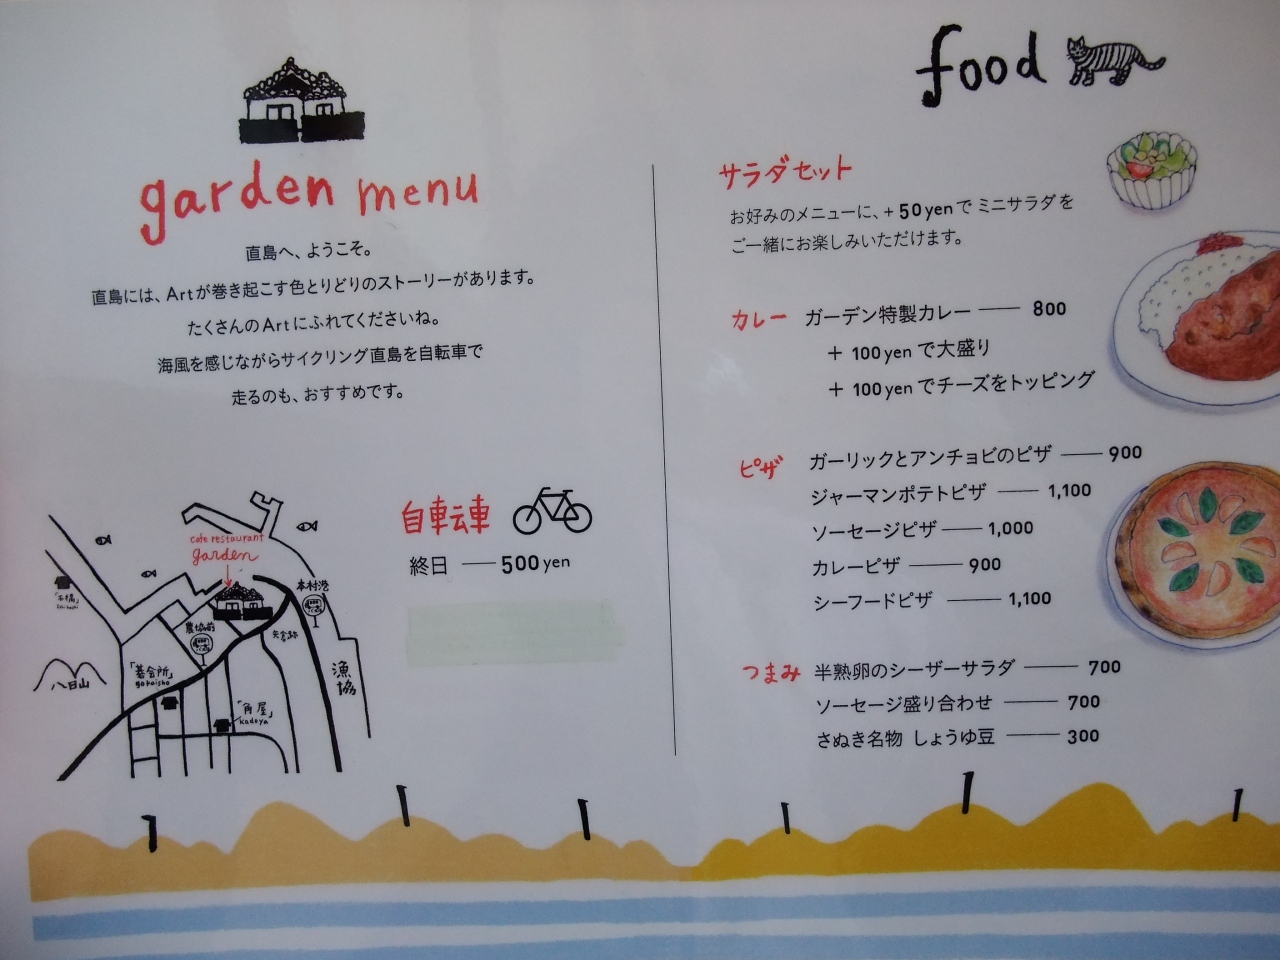 garden menu
直島へ、ようこそ。
直島には、Artが巻き起こす色とりどりのストーリーがあります。
たくさんのArtにふれてくださいね。
海風を感じながらサイクリング直島を自転車で
走るのも、おすすめです。
自転車
終日 500yen
cafe restaurant
garden
本村港
「石橋」
Ishibashi
農協前
矢倉跡
「碁会所」
gokaisho
八日山
漁協
「角屋」
kadoya
food
サラダセット
お好みのメニューに、+50yenで ミニサラダを
ご一緒にお楽しみいただけます。
カレー ガーデン特製カレー 800
+ 100yenで大盛り
+ 100yenでチーズをトッピング
ピザ ガーリックとアンチョビのピザ 900
ジャーマンポテトピザ 1,100
ソーセージピザ 1,000
カレーピザ 900
シーフードピザ 1,100
つまみ 半熟卵のシーザーサラダ 700
ソーセージ盛り合わせ 700
さぬき名物 しょうゆ豆 300